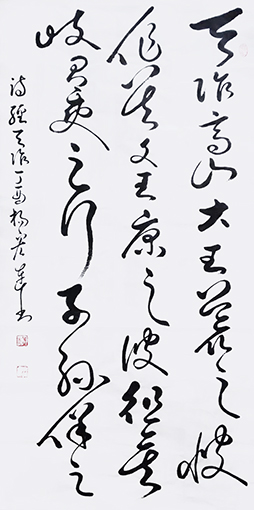 天作高山大王荒之彼
作矣文王康之彼徂矣
岐有夷之行子孙保之
诗经天作丁酉杨岩笔书